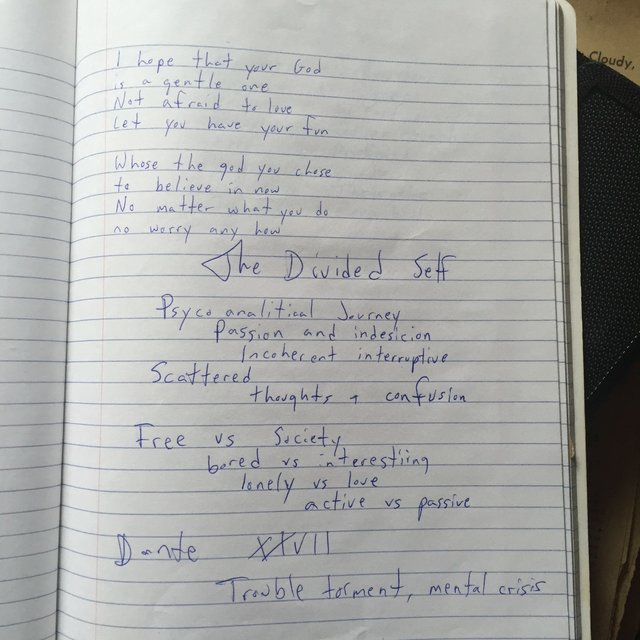 I hope that your God
is a gentle one
Not afraid to love
Let you have your fun
Whose the god you chose
to believe in now
No matter what you do
no worry any how
The Divided Self
Psyco analitical Journey
Passion and indesicion
Incoherent interruptive
Scattered
thoughts + confusion
Free vs Society
bored vs interestiing
lonely vs love
active vs passive
Dante XXVII
Trouble torment, mental crisis
Cloudy,